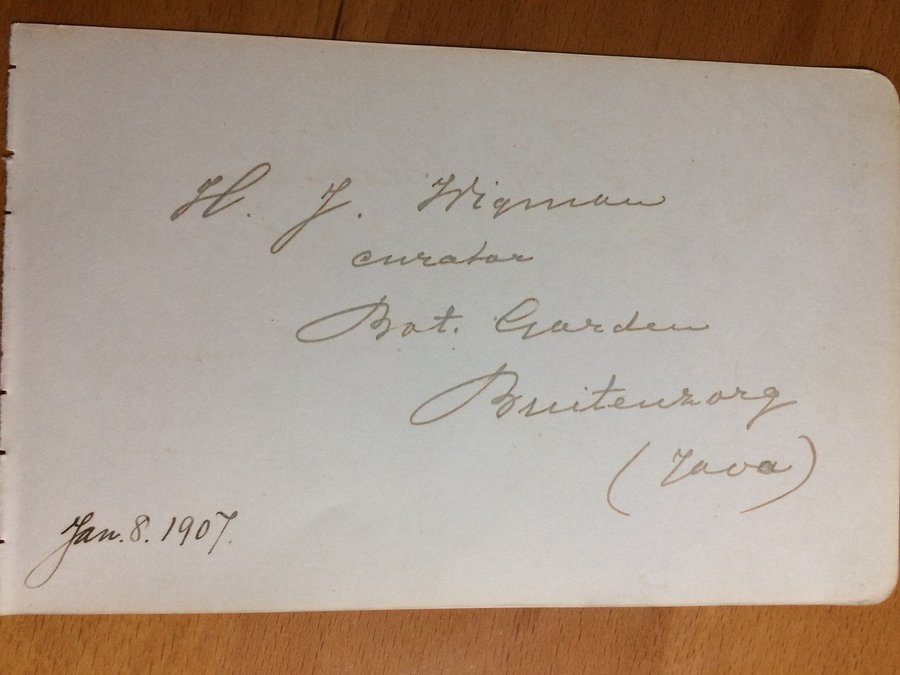 H. J. Wigman
curator
Bot. Garden
Buitenzorg
(Java)
Jan. 8. 1907.